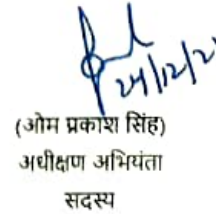 24/12/2
(ओम प्रकाश सिंह)
अधीक्षण अभियंता
सदस्य